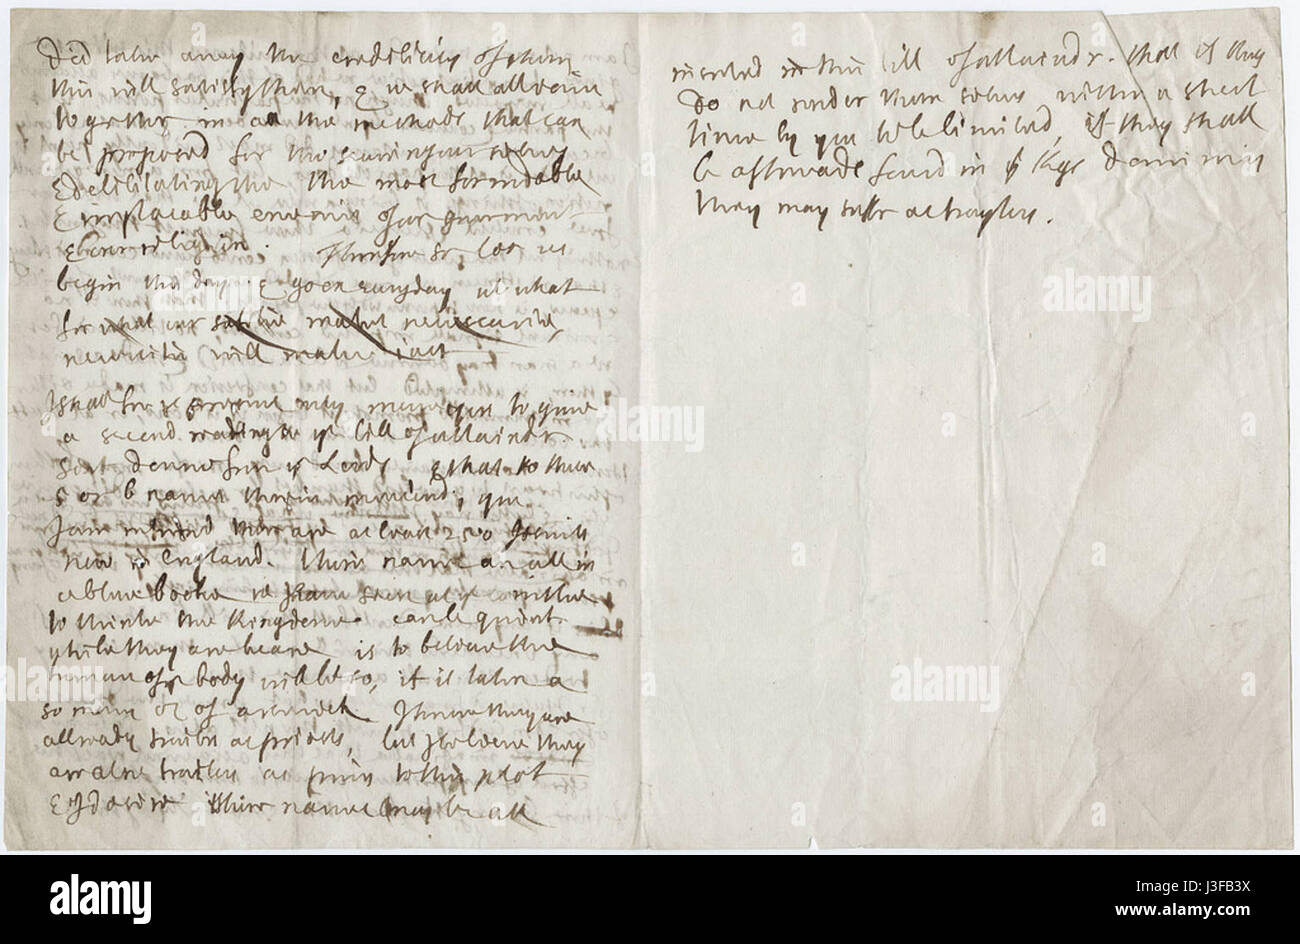 did take away the credibility of them
this will satisfy them, & we shall all joine
together in all the methods that can
be proposed for the securing our selves
& debilitating the the most formidable
& implacable enemies of our government
& our religion. Therfore so let us
begin this day & goe on every day wt what
for what our safetie makes
necessitie will make just
I shall for ye present only move you to give
a second reading to ye bill of attaindr
sent downe from ye Lords & that to those
5 or 6 names therin, you
I am informd ther are at least 250 Jesuits
now in England. Their names are all in
a blew booke we have seen at ye committee
to thinke the Kingdome can be quiet
while they are heare is to beleeve the
of ye body will be so, if it take a
so much oz of arsenick I know they are
allready traitrs as priests, but I beleeve they
are also traitrs as privy to this plot
& I desire their names may be all
inserted in this bill of attaindr. that if they
do not render them selves within a short
time by you to be limited, if they shall
be afterwards found in ye Kgs dominions
they may suffer as traytors.
alamy stock photo
alamy
Image ID: J3FB3X
www.alamy.com